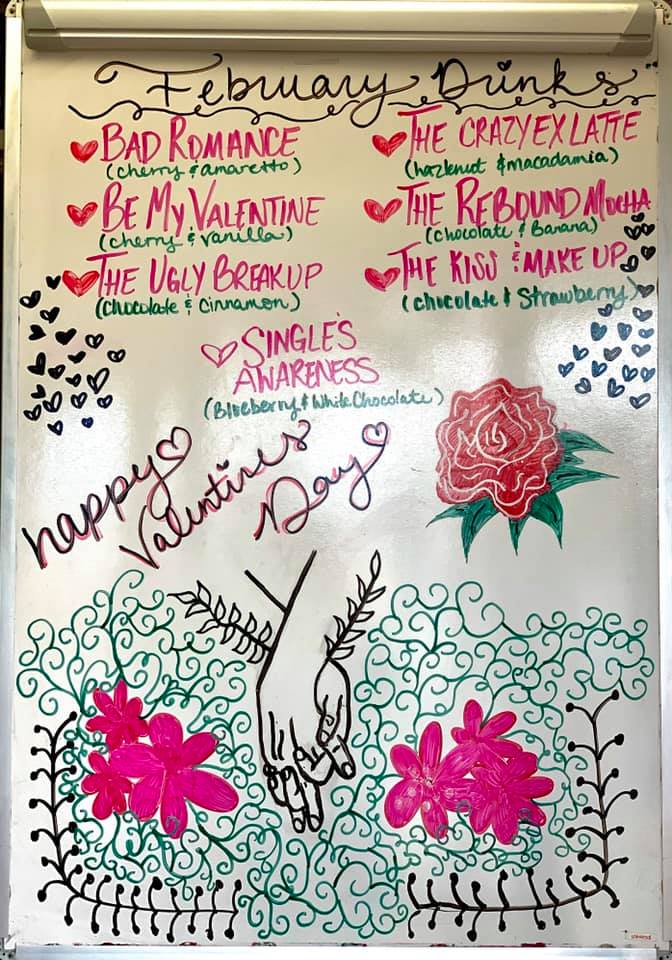 February Drinks
BAD ROMANCE
(cherry & amaretto)
BE MY VALENTINE
(cherry & vanilla)
THE UGLY BREAKUP
(Chocolate & Cinnamon)
THE CRAZY EX LATTE
(hazlenut & macadamia)
THE REBOUND MOCHA
(Chocolate & Banana)
THE KISS & MAKE UP
(chocolate & Strawberry)
SINGLE'S
AWARENESS
(Blueberry & White Chocolate)
happy
Valentines
Day